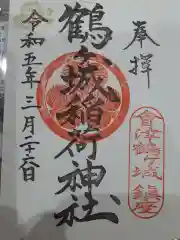 奉拝
會津鶴ヶ城鎮座
鶴ヶ城稲荷神社
令和五年三月二十六日